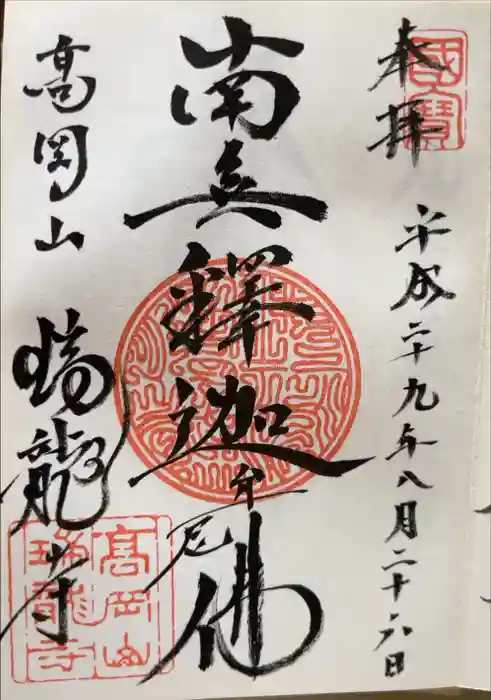 奉拝
平成二十九年八月二十六日
國寶
南無釋迦牟尼佛
高岡山
瑞龍寺
高岡山
瑞龍寺